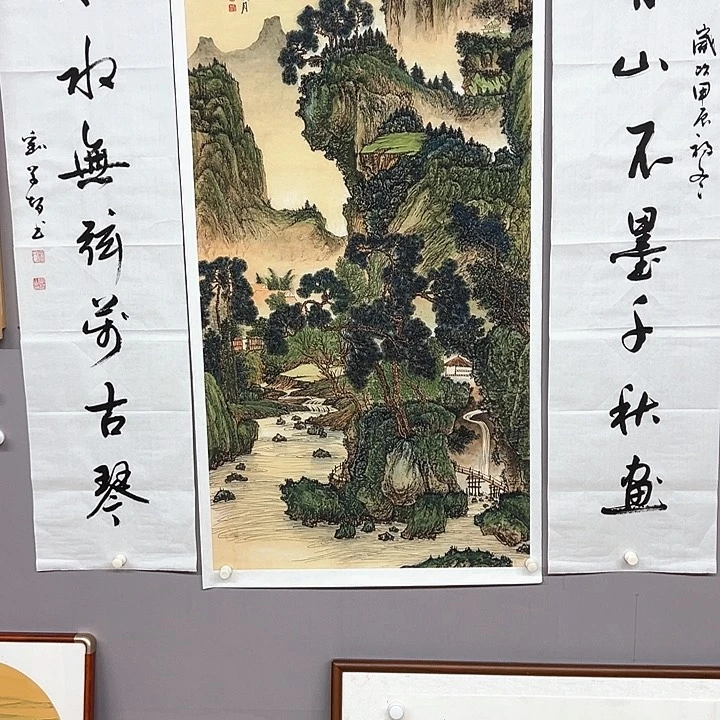 歲次甲辰初冬
山不墨千秋畫
月
水無弦萬古琴